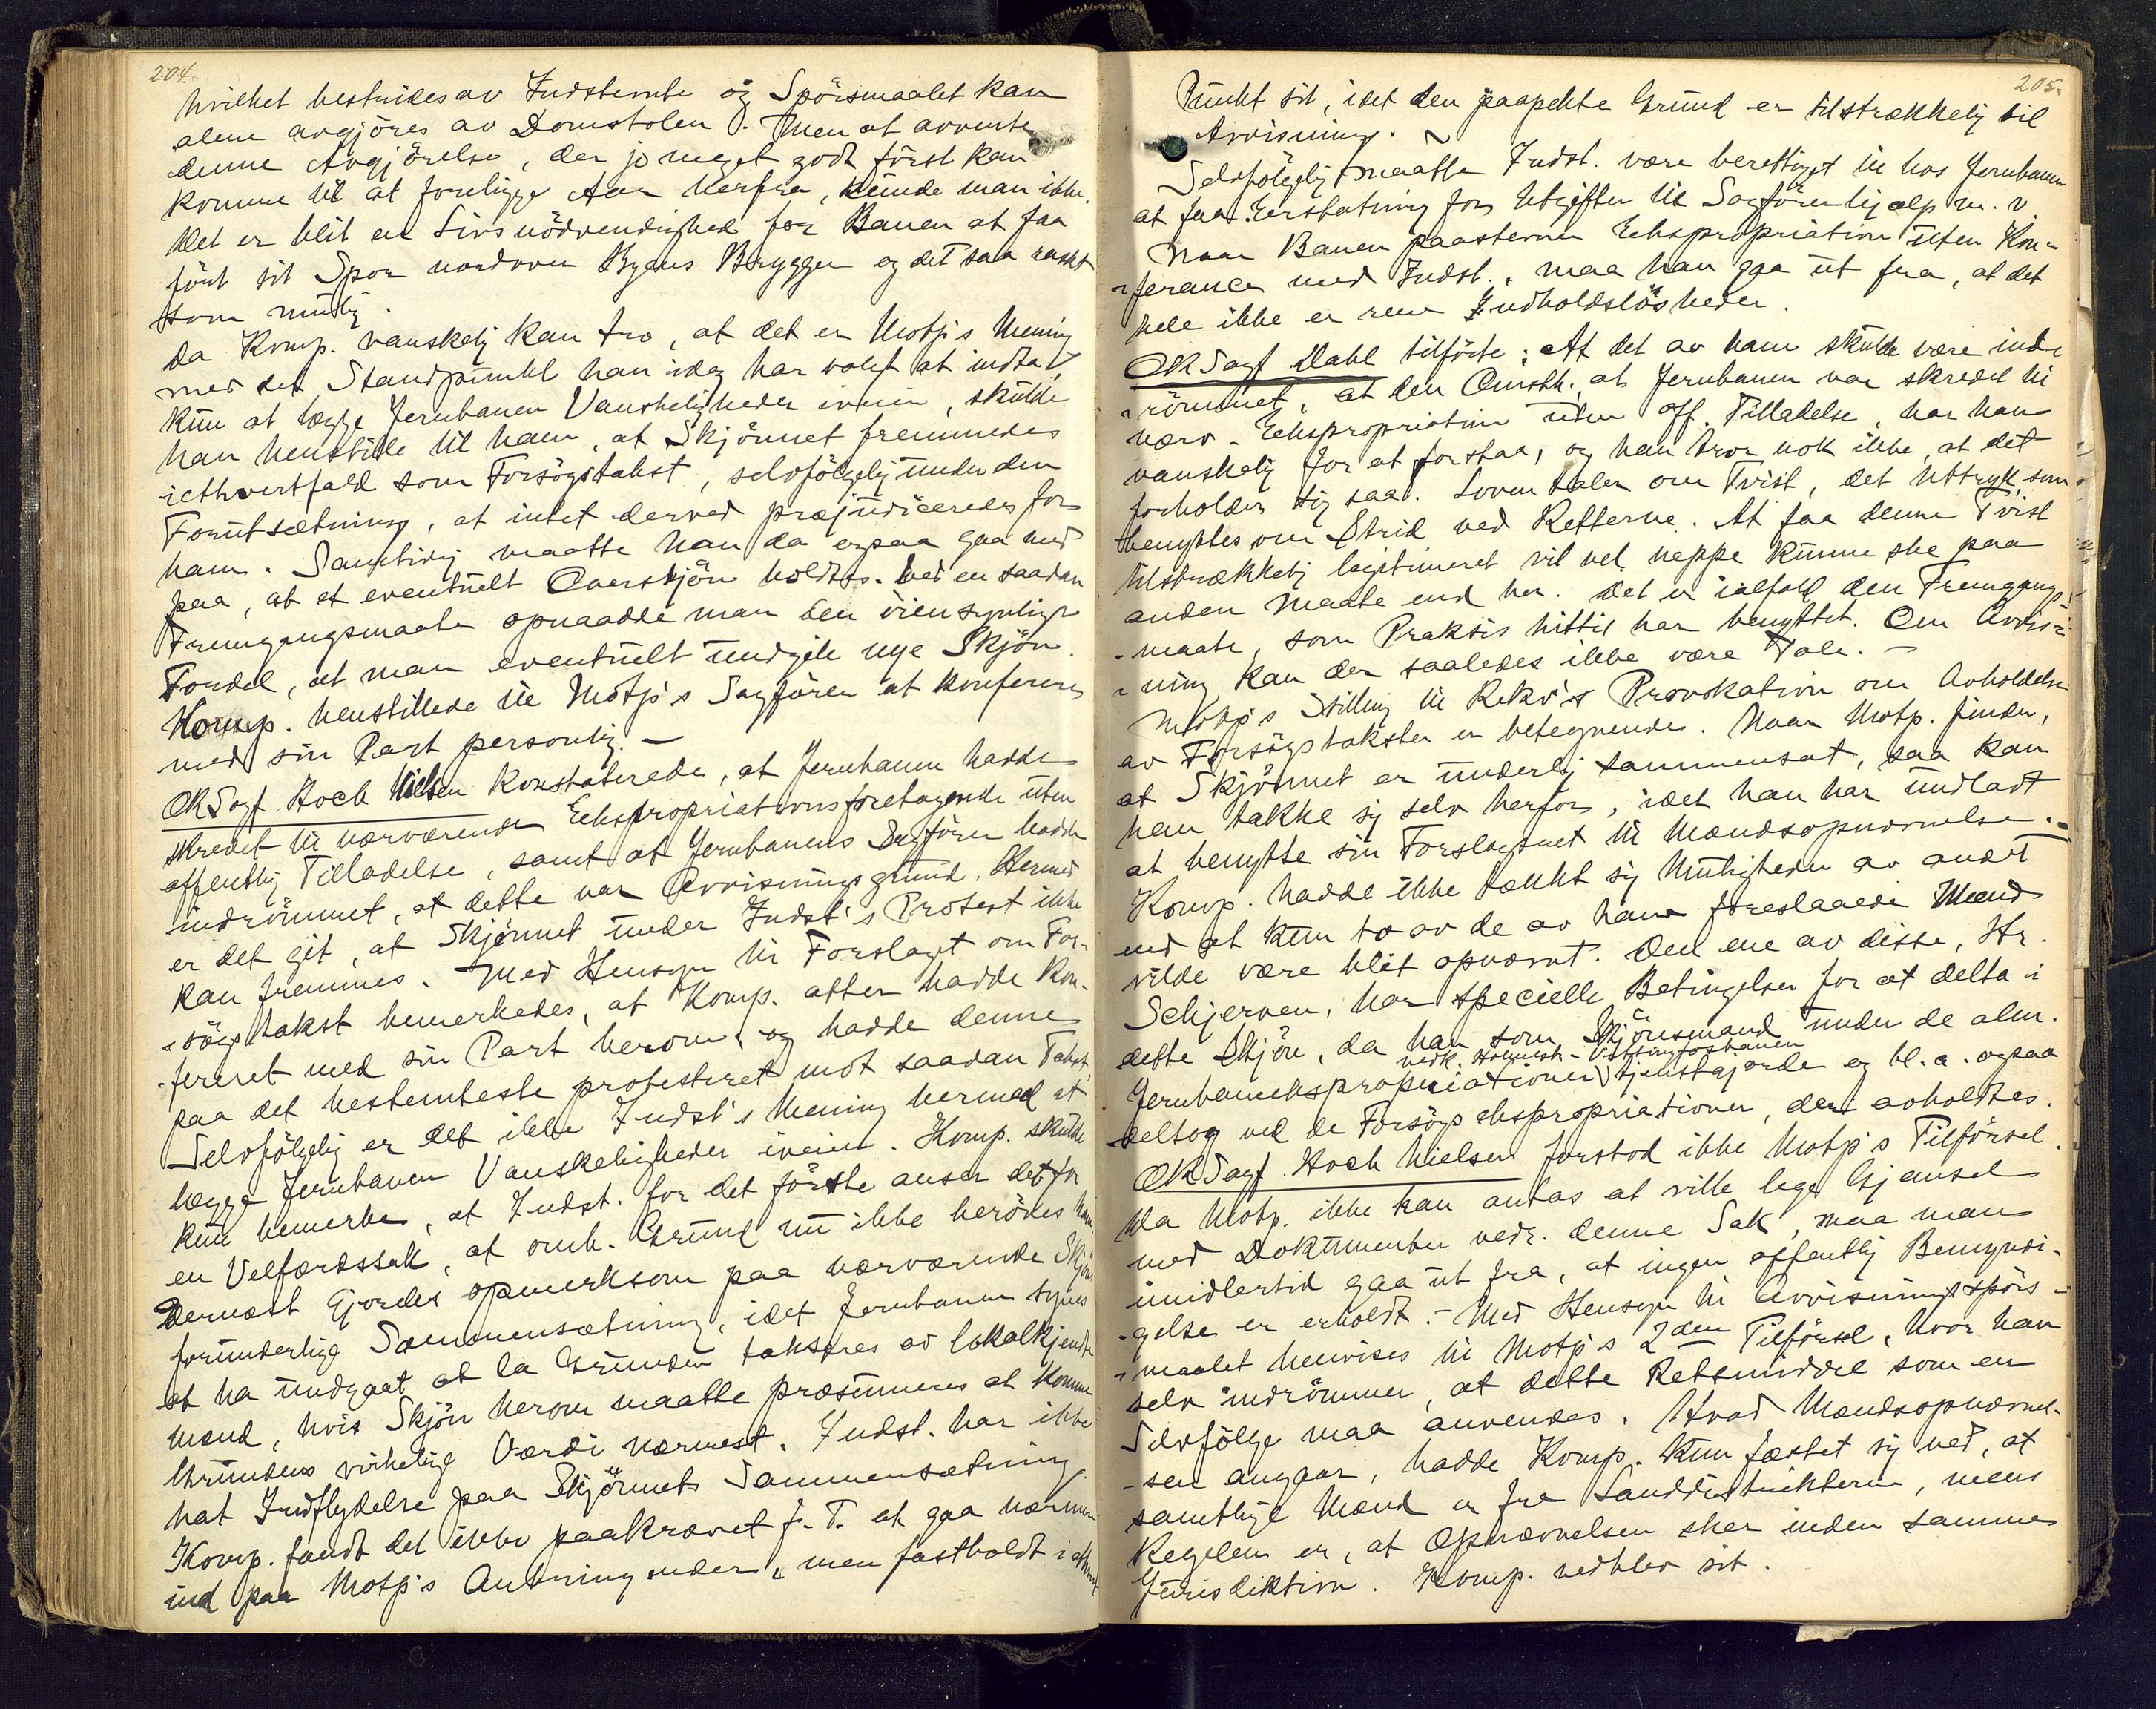 204.
hvilket bestrides av Indstevnte og Spörsmaalet kan
alene avgjöres av Domstolen. Men at avvente
denne Avgjörelse, der jo meget godt först kan
komme til at foreligge Aar herfra, kunde man ikke.
Det er blit en Livsnödvendighed for Banen at faa
fört sit Spor nordover Byens Brygger og det saa raskt
som mulig.
Da Komp. vanskelig kan tro, at det er Motp's Mening
med det Standpunkt han idag har valgt at indta,
kun at lægge Jernbanen Vanskeligheder iveien, skulde
han henstille til ham, at Skjönnet fremmedes
iethvertfald som Forsögstakst, selvfölgelig under den
Forutsætning, at intet derved præjudiceredes for
ham. Samtidig maatte han da ogsaa gaa med
paa, at et eventuelt Overskjön holdtes. Ved en saadan
Fremgangsmaate opnaadde man den öiensynlige
Fordel, at man eventuelt undgik nye Skjön.
Komp. henstillede til Motp's Sagförer at konferere
med sin Part personlig. -
OR Sagf. Hoch Nielsen konstaterede, at Jernbanen hadde
skredet til nærværende Ekspropriationsforetagende uten
offentlig Tilladelse, samt at Jernbanens Sagförer hadde
indrömmet, at dette var Avvisningsgrund. Hermed
er det git, at Skjönnet under Indst's Protest ikke
kan fremmes. Med Hensyn til Forslaget om For-
-sögstakst bemerkedes, at Komp. atter hadde kon-
-fereret med sin Part herom, og hadde denne
paa det bestemteste protesteret mot saadan Takst.
Selvfölgelig er det ikke Indst's Mening hermed at
lægge Jernbanen Vanskeligheder iveien. Komp. skulde
kun bemerke, at Indst. for det förste anser det for
en Velfærdssak, at omh. Grund nu ikke beröves ham.
Dernæst gjordes opmerksom paa nærværende Skjöns
forunderlige Sammensætning, idet Jernbanen synes
at ha undgaat at la Grunden taksteres av lokalkjendte
Mænd, hvis Skjön herom maatte præsumeres at komme
Grundens virkelige Værdi nærmest. Indst. har ikke
hat Indflydelse paa Skjönnets Sammensætning.
Komp. fandt det ikke paakrævet f. T. at gaa nærmere
ind paa Motp's Anbringender, men fastholdt i ethvert
205.
Punkt sit, idet den paapekte Grund er tilstrækkelig til
Avvisning.
Selvfölgelig maatte Indst. være berettiget til hos Jernbanen
at faa Erstatning for Utgifter til Sagförerhjælp m. v
Naar Banen paastevner Ekspropriation uten Kon-
-ferance med Indst., maa han gaa ut fra, at det
hele ikke er rene Indholdslösheder.
OR Sagf. Dahl tilförte: At det av ham skulde være ind-
-römmet, at den Omsth. at Jernbanen var skredet til
nærv. Ekspropriation uten off. Tilladelse, har han
vanskelig for at forstaa, og han tror nok ikke, at det
forholder sig saa. Loven taler om Tvist, det Uttryk som
benyttes om Strid ved Retterne. At faa denne Tvist
tilstrækkelig legitimeret vil vel neppe kunne ske paa
anden Maate end her. Det er ialfald den Fremgangs-
-maate, som Praksis hittil har benyttet. Om Avvis-
-ning kan der saaledes ikke være Tale. -
Motp's Stilling til Rekv's Provokation om Avholdelse
av Forsögstakster er betegnende. Naar Motp. finder,
at Skjönnet er underlig sammensat, saa kan
han takke sig selv herfor, idet han har undladt
at benytte sin Forslagsret til Mændsopnævnelse. -
Komp. hadde ikke tænkt sig Muligheden av andet
end at kun to av de av ham foreslaaede Mænd
vilde være blit opnævnt. Den ene av disse, Hr.
Schjerven, har specielle Betingelser for at delta i
dette Skjön, da han som Skjönsmand under de alm.
vedk. Holmestr.-Vittingfosbanen
Jernbaneekspropriationer tjenstgjorde og bl. a. ogsaa
deltog ved de Forsögsekspropriationer, der avholdtes.
OR Sagf. Hoch Nielsen forstod ikke Motp's Tilförsel.
Da Motp. ikke kan antas at ville lege Gjemsel
med Dokumenter vedr. denne Sak, maa man
imidlertid gaa ut fra, at ingen offentlig Bemyndi-
-gelse er erholdt. - Med Hensyn til Avvisningsspörs-
-maalet henvises til Motp's 2den Tilförsel, hvor han
selv indrömmer, at dette Retsmiddel som en
Selvfölge maa anvendes. Hvad Mændsopnævnel-
-sen angaar, hadde Komp. kun fæstet sig ved, at
samtlige Mænd er fra Landdistrikterne, mens
Regelen er, at Opnævnelsen sker inden samme
Jurisdiktion. Komp. vedblev sit.